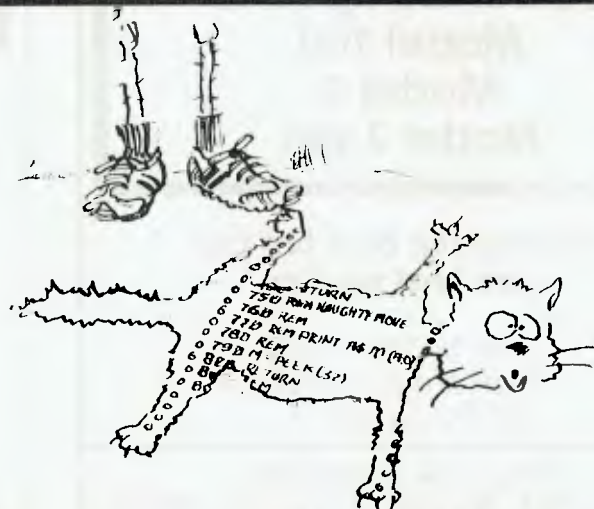 TURN
750 REM NAUGHTY MOVE
760 REM
770 REM PRINT
780 REM
790 M = PEEK(32)
RETURN